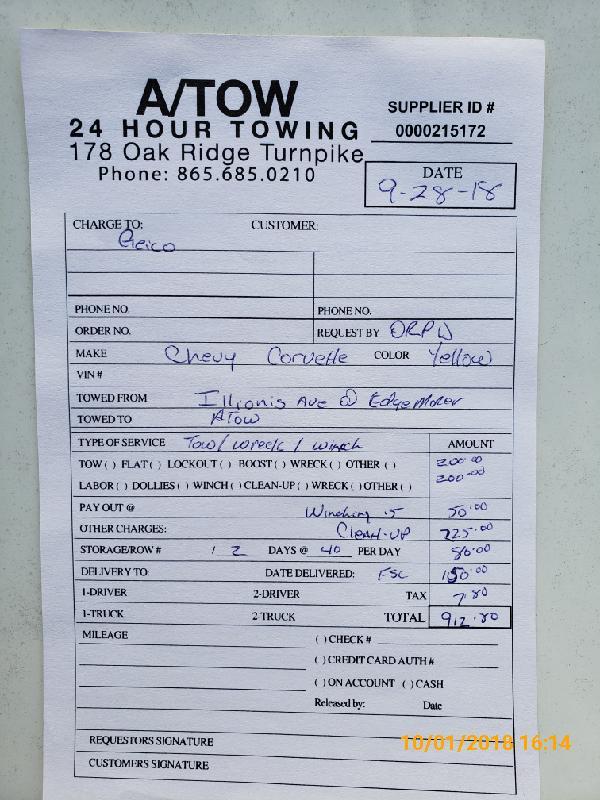 A/TOW
24 HOUR TOWING
178 Oak Ridge Turnpike
Phone: 865.685.0210
SUPPLIER ID #
0000215172
DATE
9-28-18
CHARGE TO: CUSTOMER:
Geico
PHONE NO. PHONE NO.
ORDER NO. REQUEST BY ORPD
MAKE Chevy Corvette COLOR Yellow
VIN #
TOWED FROM Illionis Ave @ Edgemoor
TOWED TO ATOW
TYPE OF SERVICE Tow/wreck/winch AMOUNT
TOW ( ) FLAT ( ) LOCKOUT ( ) BOOST ( ) WRECK ( ) OTHER ( ) 200.00
LABOR ( ) DOLLIES ( ) WINCH ( ) CLEAN-UP ( ) WRECK ( ) OTHER ( ) 200.00
PAY OUT @ Winching .5 50.00
OTHER CHARGES: Clean-up 225.00
STORAGE/ROW # / 2 DAYS @ 40 PER DAY 80.00
DELIVERY TO: DATE DELIVERED: FSC 150.00
1-DRIVER 2-DRIVER TAX 7.80
1-TRUCK 2-TRUCK TOTAL 912.80
MILEAGE ( ) CHECK #
( ) CREDIT CARD AUTH #
( ) ON ACCOUNT ( ) CASH
Released by: Date
REQUESTORS SIGNATURE
CUSTOMERS SIGNATURE
10/01/2018 16:14